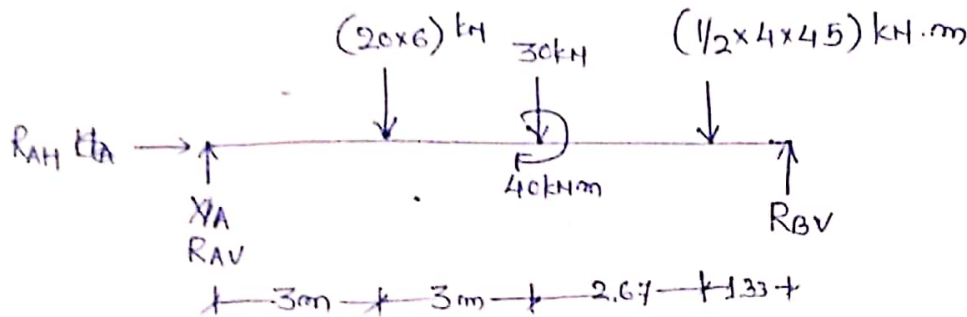 (20×6) kN
30kN
(1/2×4×45) kN.m
RAH
40kNm
RAV
RBV
3m
3m
2.67
1.33